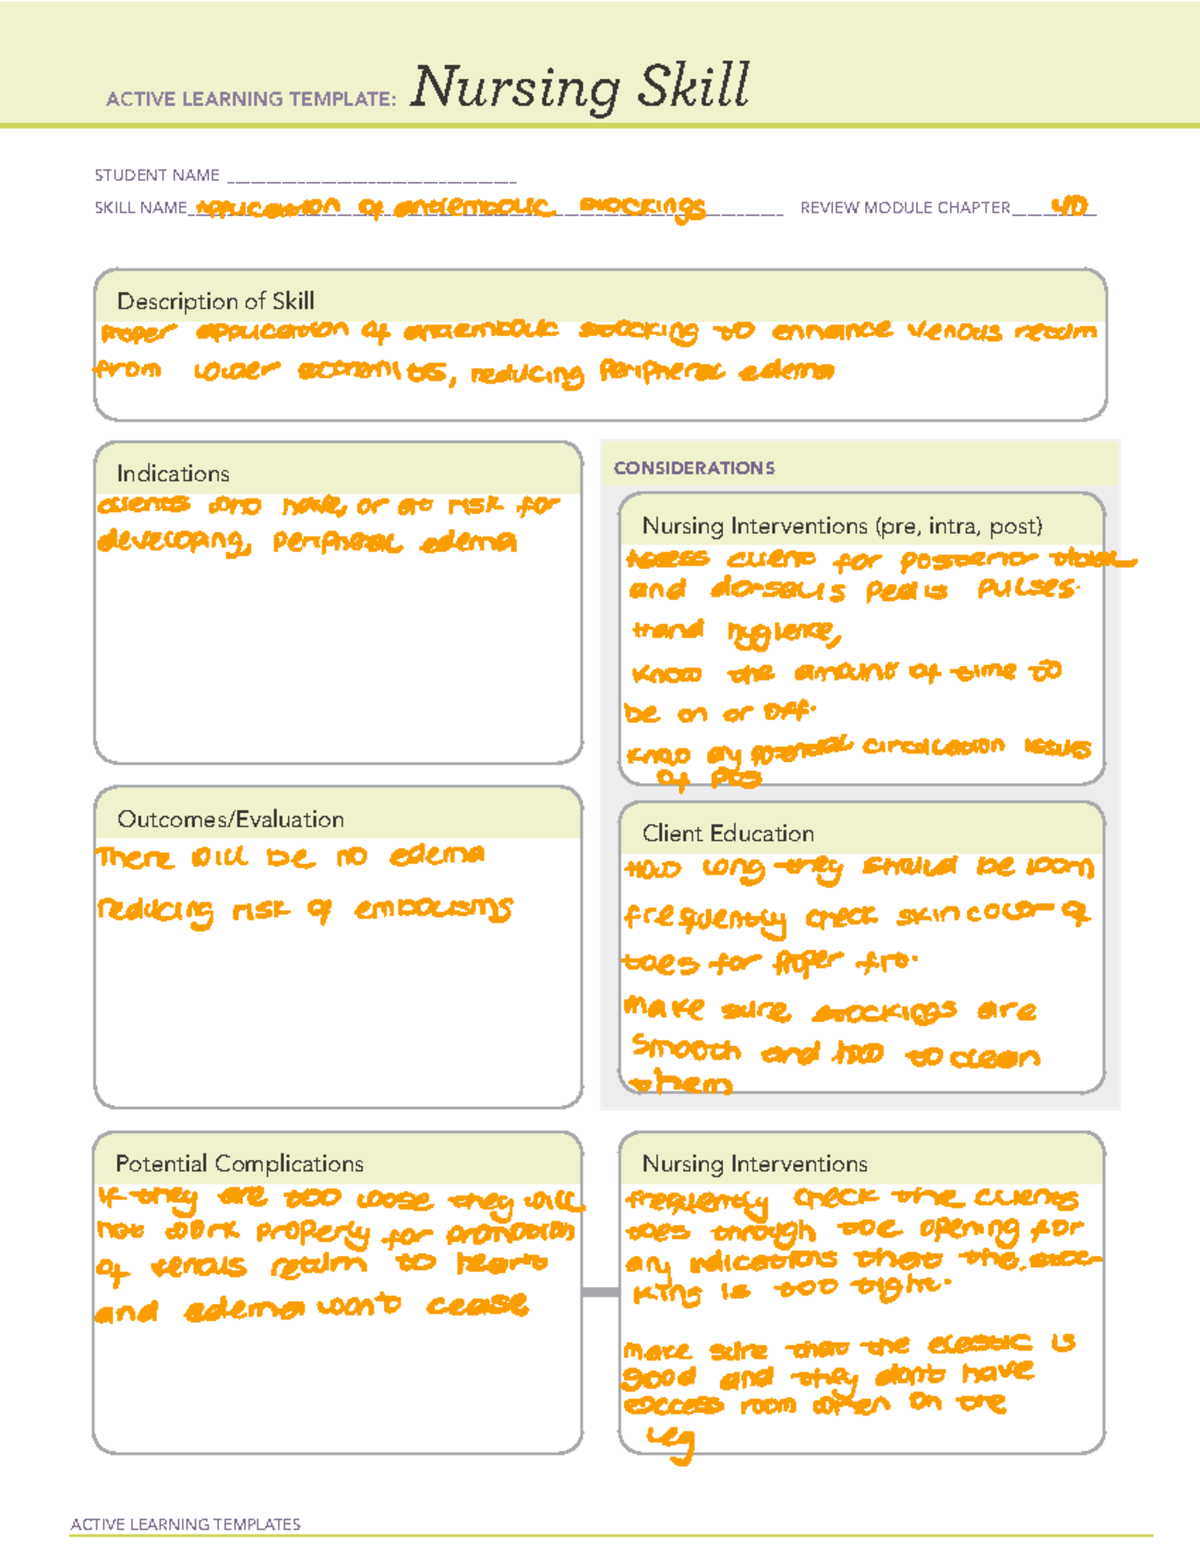 ACTIVE LEARNING TEMPLATE: Nursing Skill
STUDENT NAME
SKILL NAME Application of antiembolic stockings REVIEW MODULE CHAPTER 40
Description of Skill
Proper application of antiembolic stocking to enhance venous return
from lower extremities, reducing peripheral edema
Indications
clients who have, or at risk for
developing, peripheral edema
CONSIDERATIONS
Nursing Interventions (pre, intra, post)
Assess client for posterior tibial
and dorsalis pedis pulses.
Hand hygiene,
Know the amount of time to
be on or off.
Know any potential circulation issues
of pts
Outcomes/Evaluation
There will be no edema
reducing risk of embolisms
Client Education
How long they should be worn
frequently check skin color of
toes for proper fit.
Make sure stockings are
smooth and how to clean
them
Potential Complications
If they are too loose they will
not work properly for promotion
of venous return to heart
and edema won't cease
Nursing Interventions
frequently check the clients
toes through toe opening for
any indications that the stoc-
king is too tight.
make sure that the elastic is
good and they don't have
excess room when on the
leg
ACTIVE LEARNING TEMPLATES